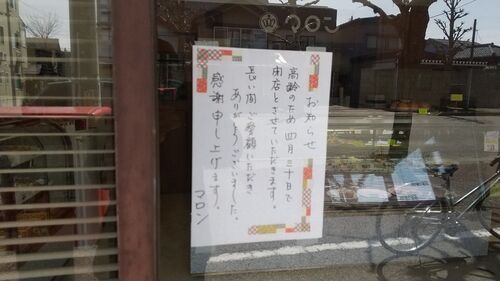 マロン
お知らせ
高齢のため四月三十日で
閉店とさせていただきます。
長い間ご愛顧いただき
ありがとうございました。
感謝申し上げます。
マロン